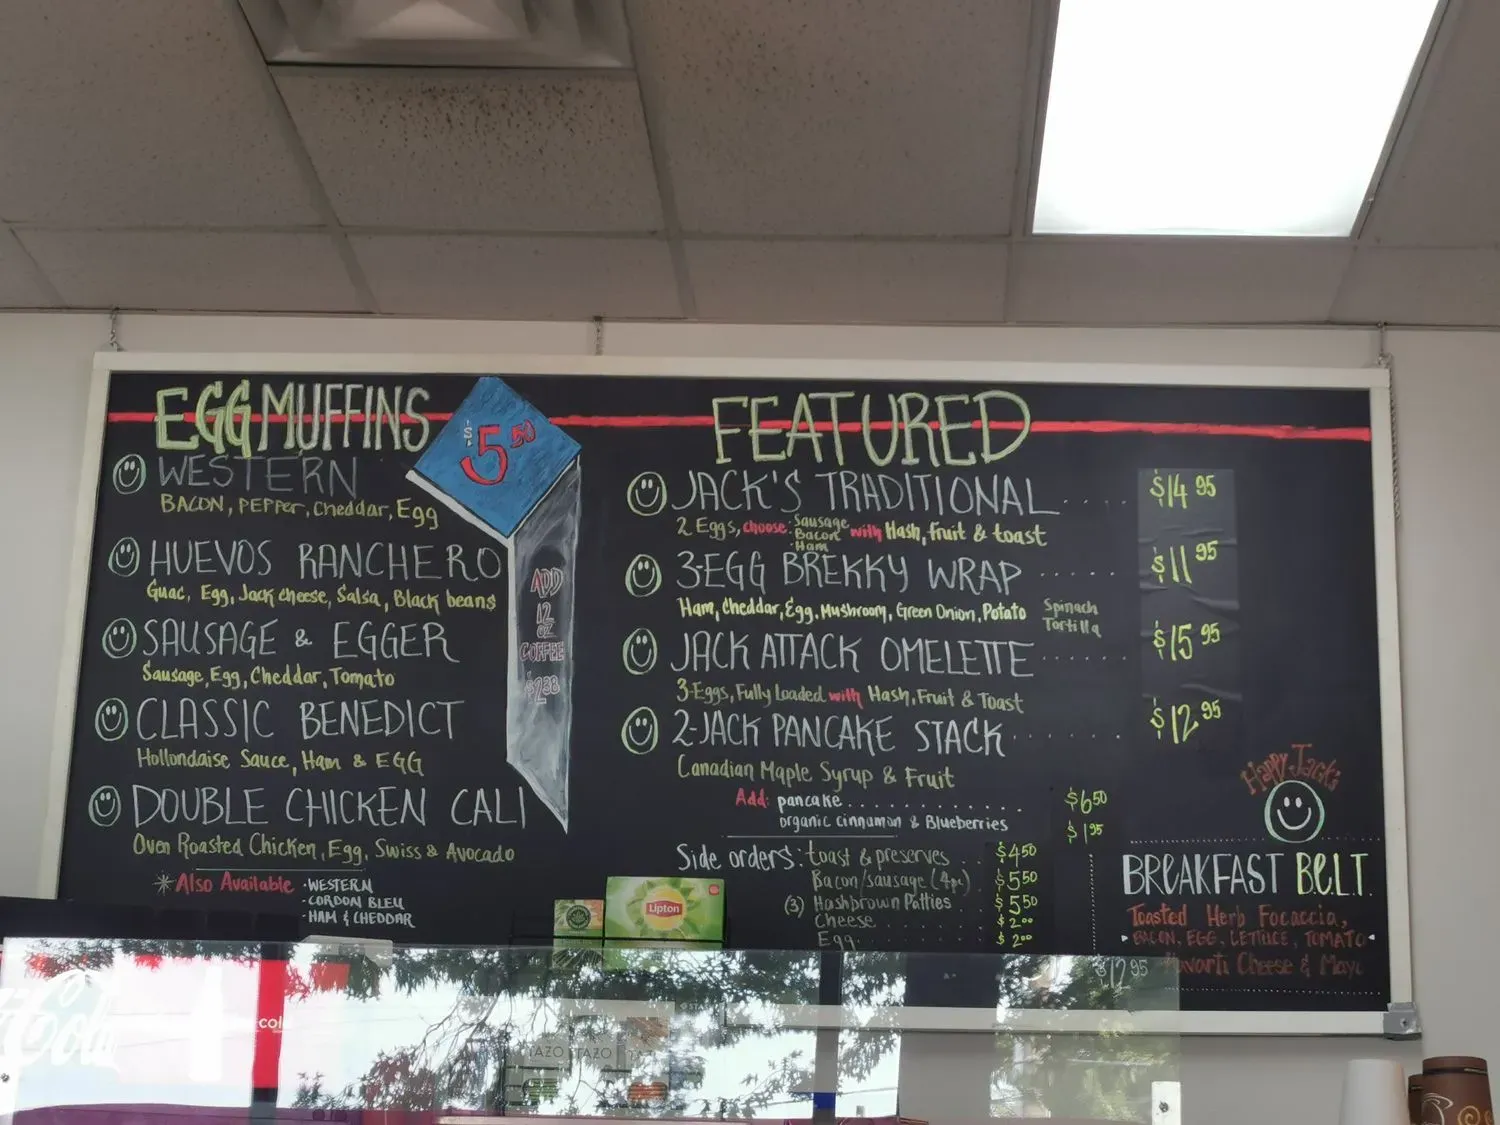 EGG MUFFINS
$5.50
WESTERN
BACON, PEPPER, Cheddar, Egg
HUEVOS RANCHERO
Guac, Egg, Jack cheese, Salsa, Black beans
SAUSAGE & EGGER
Sausage, Egg, Cheddar, Tomato
CLASSIC BENEDICT
Hollondaise Sauce, Ham & EGG
DOUBLE CHICKEN CALI
Oven Roasted Chicken, Egg, Swiss & Avocado
*Also Available
·WESTERN
·CORDON BLEU
·HAM & CHEDDAR
ADD
12
oz
COFFEE
$2.38
FEATURED
JACK'S TRADITIONAL ..... $14.95
2 Eggs, choose: Sausage with Hash, fruit & toast
Bacon
Ham
3-EGG BREKKY WRAP ...... $11.95
Ham, Cheddar, Egg, Mushroom, Green Onion, Potato
Spinach
Tortilla
JACK ATTACK OMELETTE ...... $15.95
3-Eggs, Fully Loaded with Hash, Fruit & Toast
2-JACK PANCAKE STACK ...... $12.95
Canadian Maple Syrup & Fruit
Add: pancake .............. $6.50
organic cinnamon & Blueberries $1.95
Side orders: toast & preserves .. $4.50
Bacon/sausage (4pc) . $5.50
(3) Hashbrown Patties . $5.50
Cheese ....... $2.00
Egg ....... $2.00
Happy Jack's
BREAKFAST B.E.L.T.
Toasted Herb Focaccia,
BACON, EGG, LETTUCE, TOMATO
Havarti Cheese & Mayo
$12.95
Lipton
TAZO TAZO